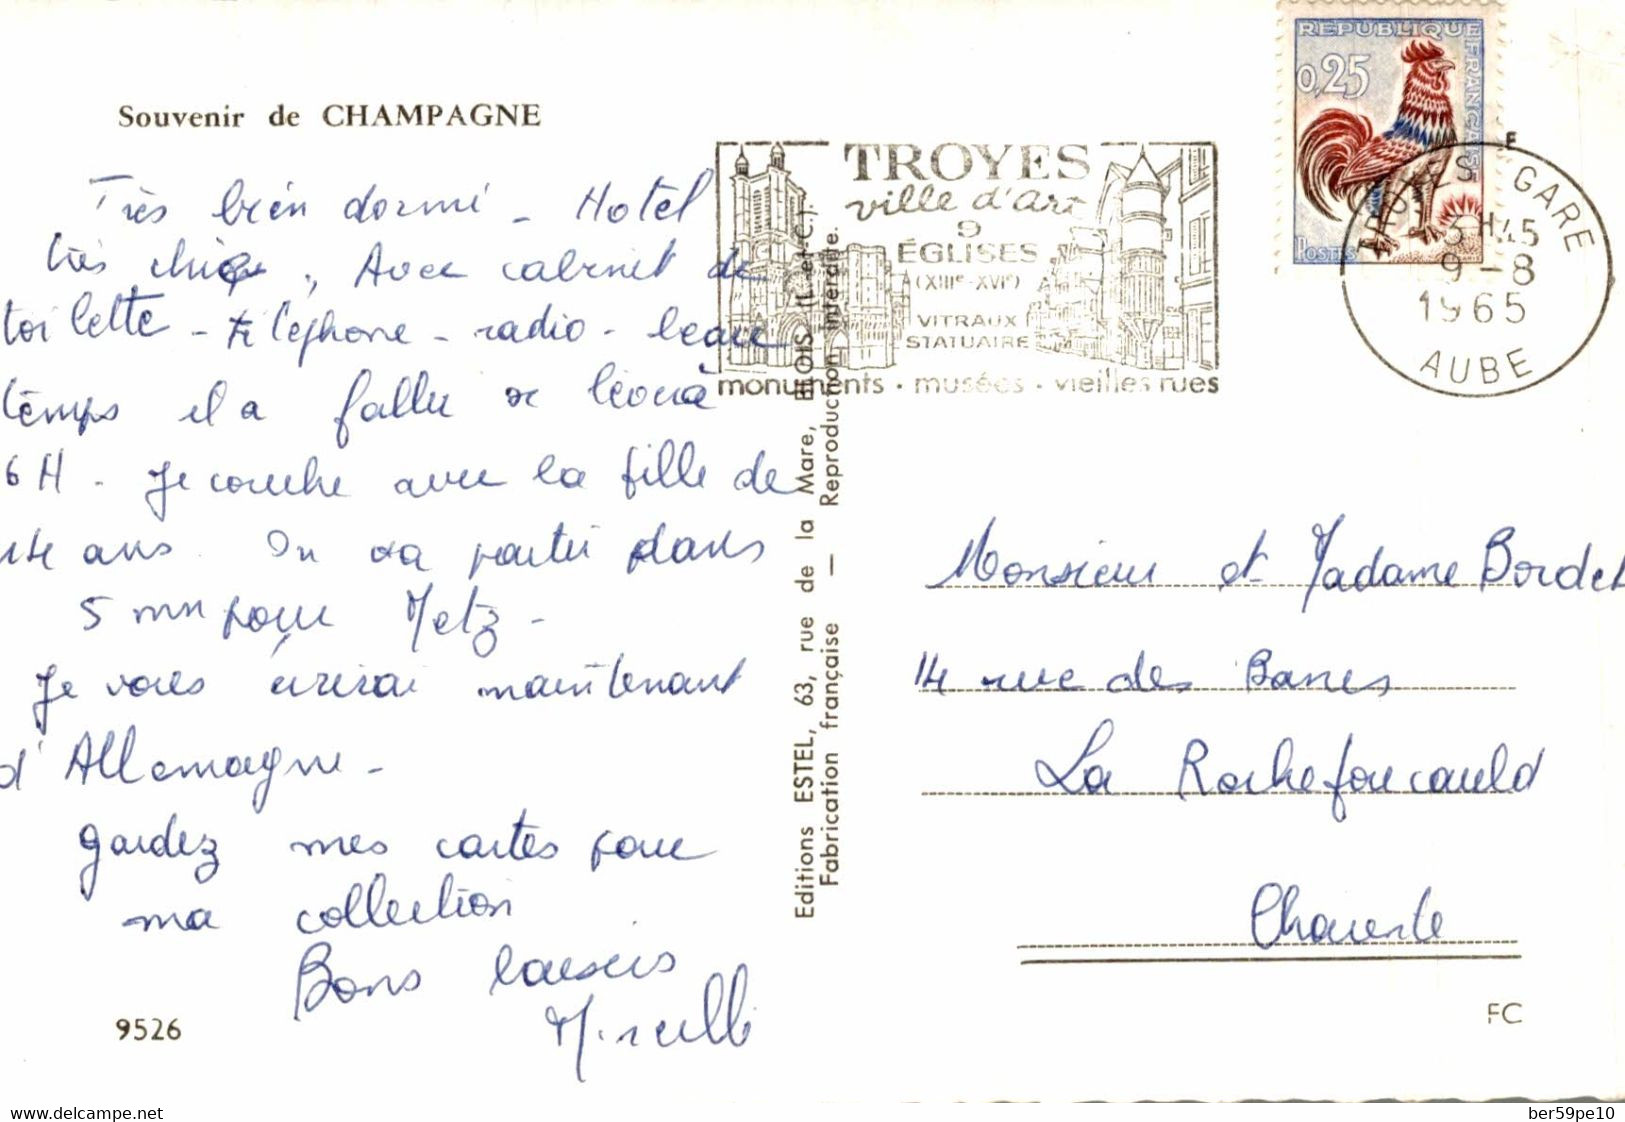 Souvenir de CHAMPAGNE
Très bien dormi - Hotel
très chic, Avec cabinet de
toilette - téléphone - radio - beau
temps il a fallu se lever à
6 H - Je couche avec la fille de
14 ans. On va partir dans
5 mn pour Metz -
Je vous écrirai maintenant
d'Allemagne -
gardez mes cartes pour
ma collection
Bons baisers
9526
Editions ESTEL, 63, rue de la Mare, BLOIS (L.-et-C.).
Fabrication française — Reproduction interdite.
TROYES
ville d'art
9
ÉGLISES
(XIIIe-XVIe)
VITRAUX
STATUAIRE
monuments • musées • vieilles rues
REPUBLIQUE FRANÇAISE
0,25
POSTES
TROYES GARE
3H45
9-8
1965
AUBE
Monsieur et Madame Bordet
14 rue des Bancs
La Rochefoucauld
Charente
FC
www.delcampe.net
ber59pe10